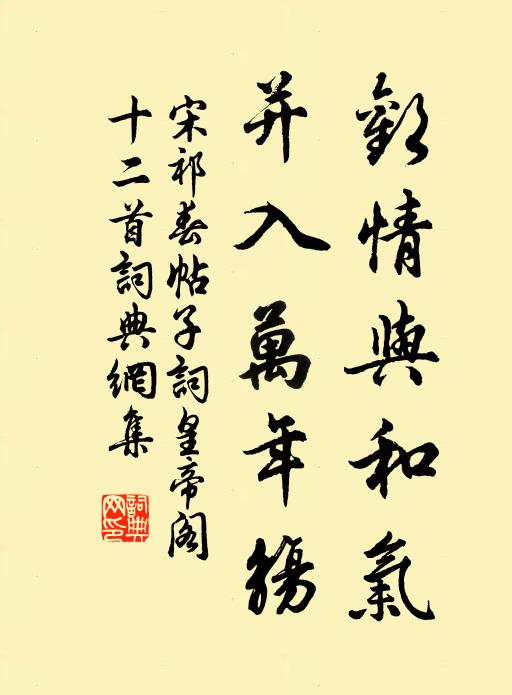 歡情與和氣
并入萬年觴
宋祁春帖子詞皇帝閣
十二首詞典網集
詞典
网印